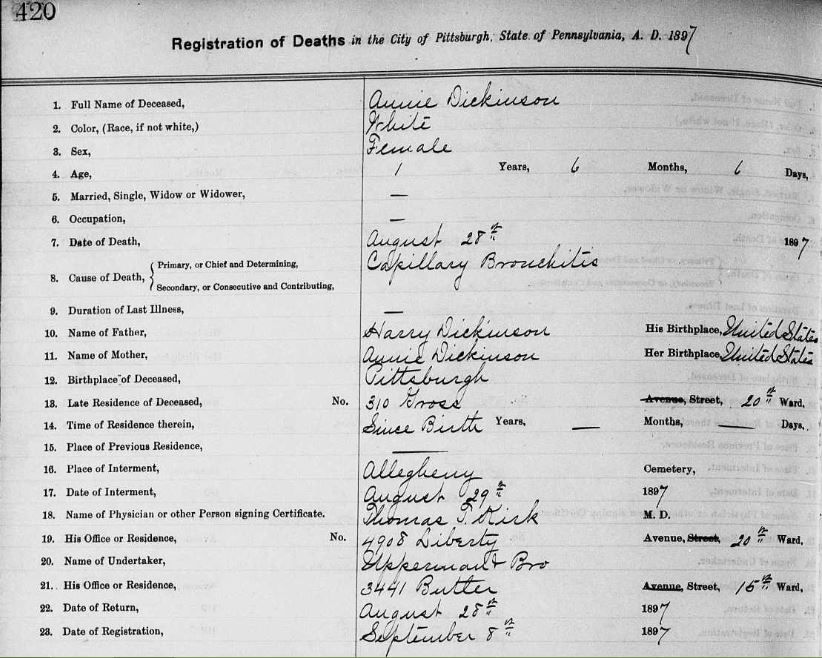 420
Registration of Deaths in the City of Pittsburgh, State of Pennsylvania, A. D. 1897
1. Full Name of Deceased, Annie Dickinson
2. Color, (Race, if not white,) White
3. Sex, Female
4. Age, 1 Years, 6 Months, 6 Days,
5. Married, Single, Widow or Widower, —
6. Occupation, —
7. Date of Death, August 28th 1897
8. Cause of Death, { Primary, or Chief and Determining, Capillary Bronchitis
Secondary, or Consecutive and Contributing,
9. Duration of Last Illness, —
10. Name of Father, Harry Dickinson His Birthplace, United States
11. Name of Mother, Annie Dickinson Her Birthplace, United States
12. Birthplace of Deceased, Pittsburgh
13. Late Residence of Deceased, No. 310 Gross Avenue, Street, 20th Ward,
14. Time of Residence therein, Since Birth Years, — Months, — Days,
15. Place of Previous Residence, —
16. Place of Interment, Allegheny Cemetery,
17. Date of Interment, August 29th 1897
18. Name of Physician or other Person signing Certificate. Thomas T. Kirk M. D.
19. His Office or Residence, No. 4908 Liberty Avenue, Street, 20th Ward,
20. Name of Undertaker, Upperman & Bro
21. His Office or Residence, 3441 Butler Avenue, Street, 15th Ward,
22. Date of Return, August 28th 1897
23. Date of Registration, September 8th 1897